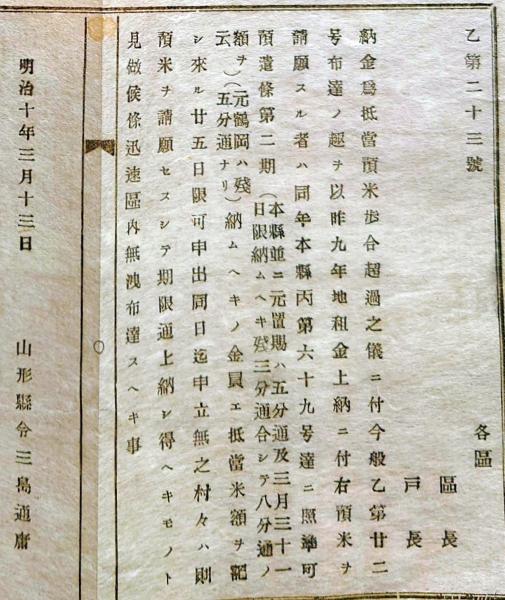 乙第二十三號
各區
區長
戸長
納金爲抵當預米歩合超過之儀ニ付今般乙第廿二
号布達ノ趣ヲ以昨九年地租金上納ニ付右預米ヲ
請願スル者ハ同年本縣丙第六十九号達ニ照準可
預置條第二期(本縣並ニ元置賜ハ五分通及三月三十一
日限納ムヘキ残三分通合シテ八分通ノ
額ヲ)(元鶴岡ハ残
云)(五分通ナリ)納ムヘキノ金員エ抵當米額ヲ記
シ來ル廿五日限可申出同日迄申立無之村々ハ則
預米ヲ請願セスシテ期限通上納シ得ヘキモノト
見做候條迅速區内無洩布達スヘキ事
明治十年三月十三日
山形縣令三島通庸